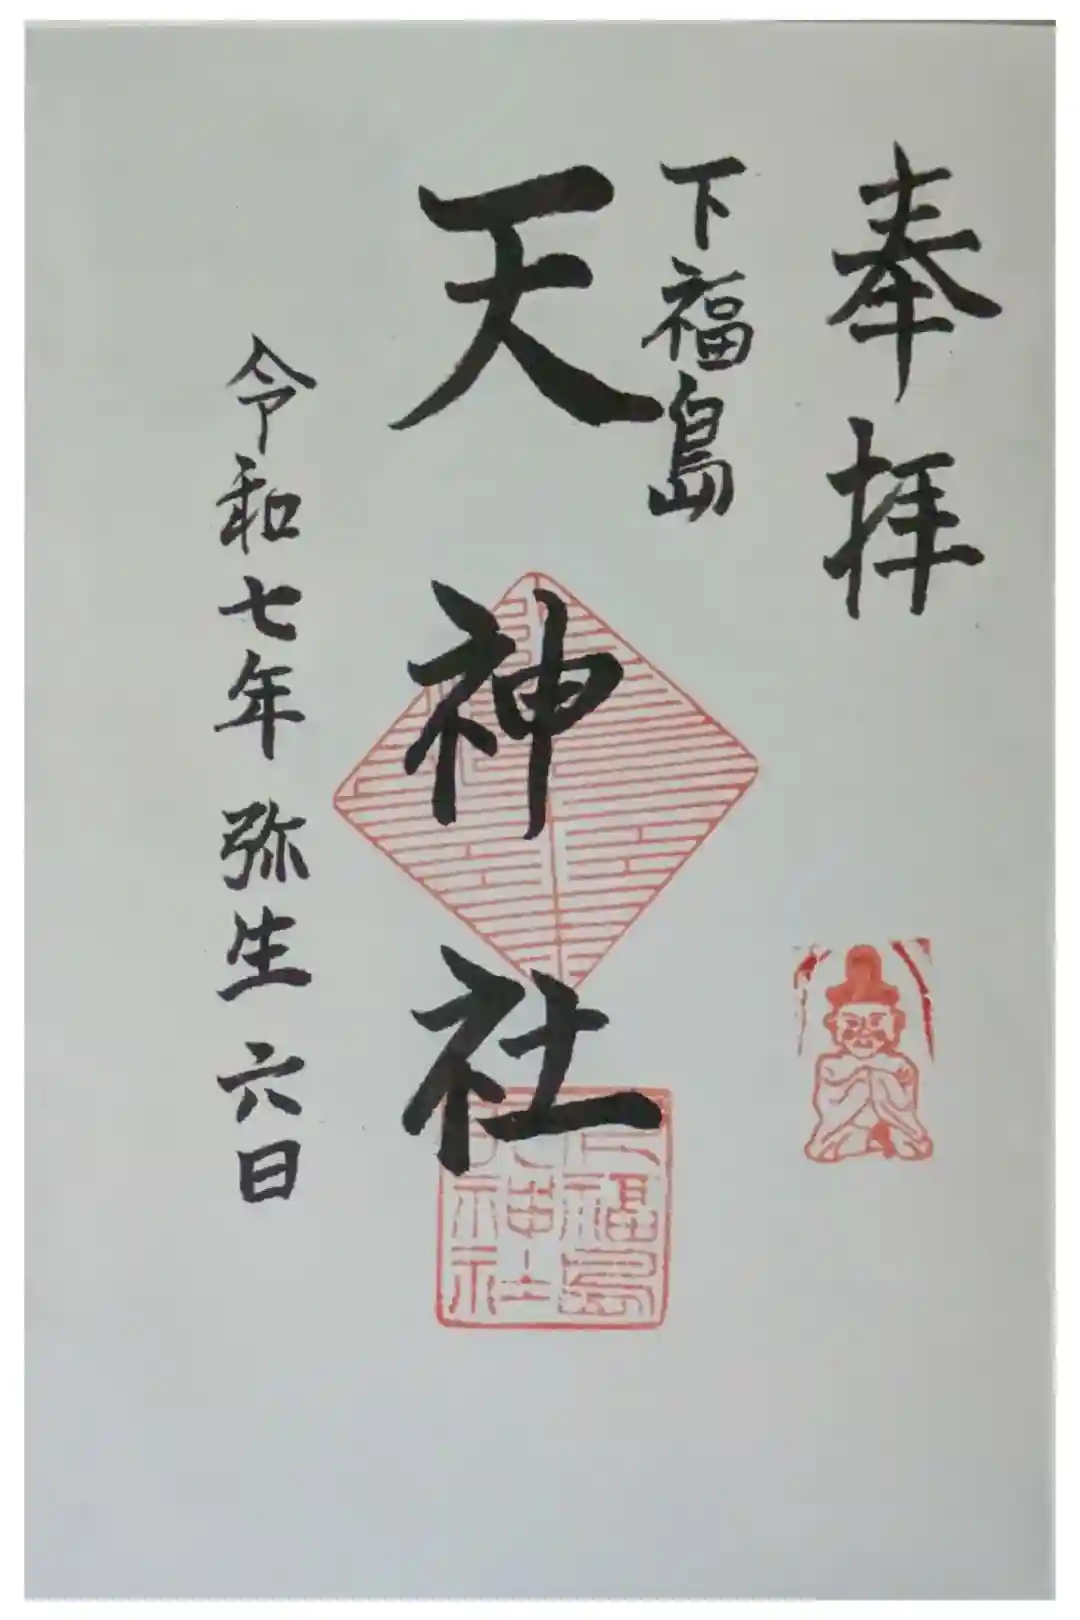 奉拝
下福島
天神社
令和七年弥生六日
下福島
天神社